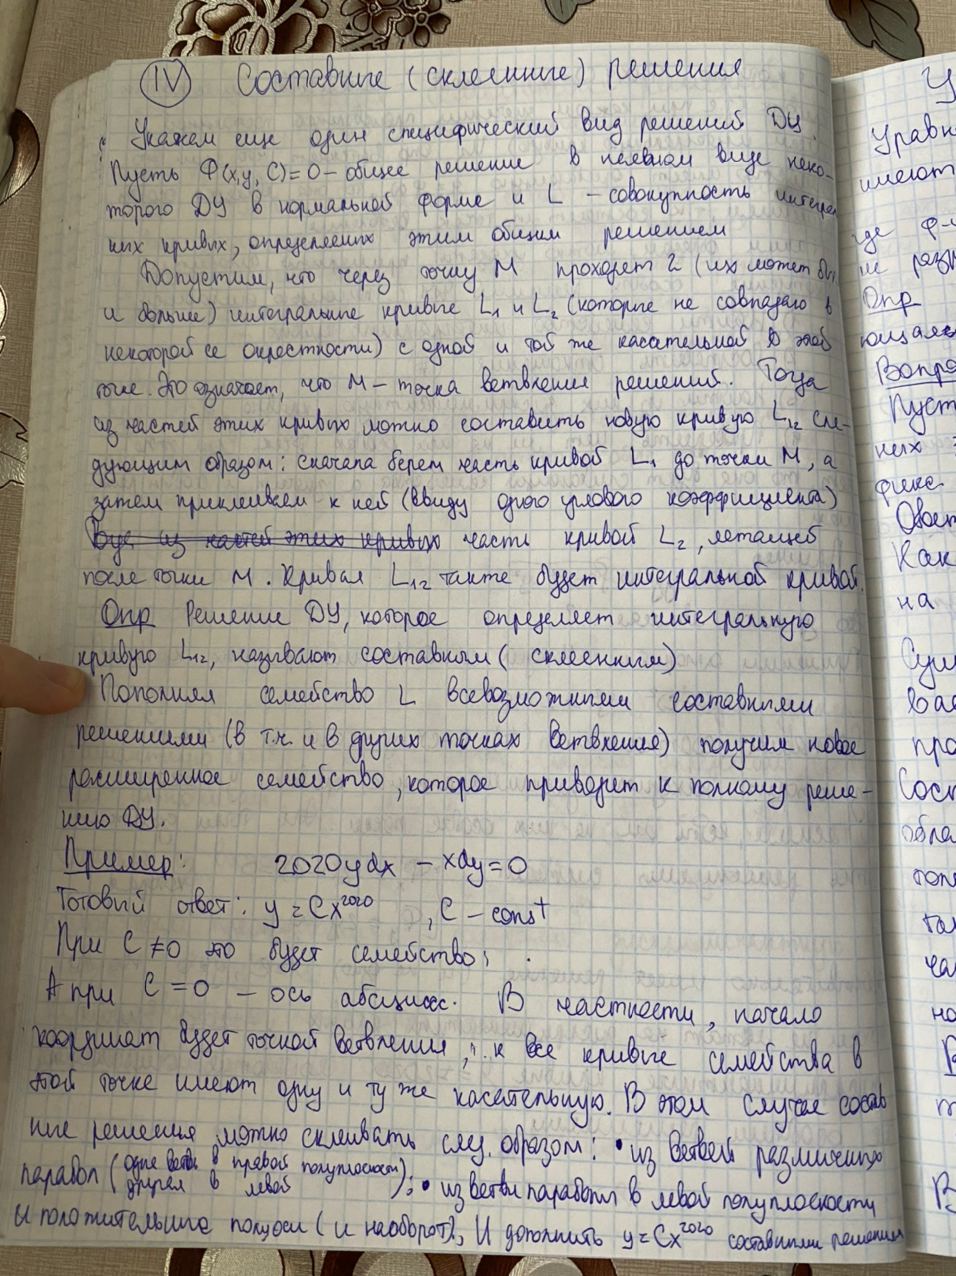 IV Составные (склеенные) решения
Укажем еще один специфический вид решений ДУ.
Пусть Φ(x,y,C)=0 – общее решение в неявном виде неко-
торого ДУ в нормальной форме и L – совокупность интеграль
ных кривых, определяемых этим общим решением
Допустим, что через точку M проходят 2 (их может быть
и больше) интегральные кривые L₁ и L₂ (которые не совпадают в
некоторой ее окрестности) с одной и той же касательной в этой
точке. Это означает, что M – точка ветвления решений. Тогда
из частей этих кривых можно составить новую кривую L₁₂ сле-
дующим образом: сначала берем часть кривой L₁ до точки M, а
затем приклеиваем к ней (ввиду одного углового коэффициента)
из частей этих кривых часть кривой L₂, лежащей
после точки M. Кривая L₁₂ также будет интегральной кривой.
Опр Решение ДУ, которое определяет интегральную
кривую L₁₂, называют составным (склеенным)
Пополняя семейство L всевозможными составными
решениями (в т.ч. и в других точках ветвления) получим новое
расширенное семейство, которое приведет к полному реше-
нию ДУ.
Пример: 2020ydx – xdy=0
Готовый ответ: y=Cx²⁰²⁰, C – const
При C≠0 это будет семейство;
А при C=0 – ось абсцисс. В частности, начало
координат будет точкой ветвления, т.к все кривые семейства в
этой точке имеют одну и ту же касательную. В этом случае состав
ные решения можно склеивать след. образом: • из ветвей различных
парабол (одна ветвь в правой полуплоскости,
другая в левой); • из ветви параболы в левой полуплоскости
и положительные полуоси (и наоборот), И дополнить y=Cx²⁰²⁰ составными решениями
У
Уравн
имеют
где ф-
не раз
Опр
ющаяся
Вопро
Пуст
них
фикс
Ответ
Как
на
Сущ
про
Сост
обра